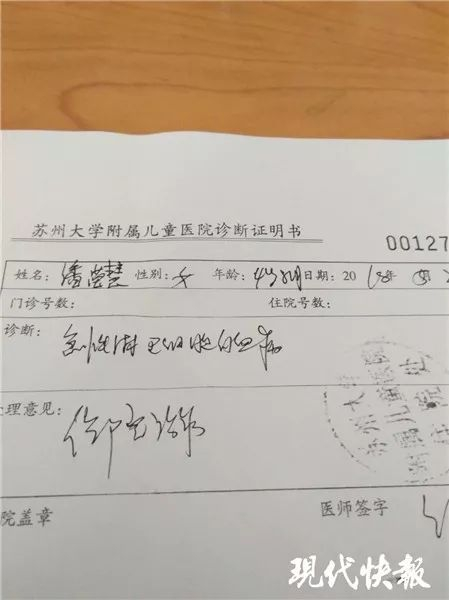 苏州大学附属儿童医院诊断证明书
00127
姓名: 潘莹慧 性别: 女 年龄: 4岁 日期: 2018年
门诊号数: 住院号数:
诊断: 急性淋巴细胞白血病
处理意见: 住院治疗
院盖章 医师签字
苏州大学
附属儿童医院
现代快报